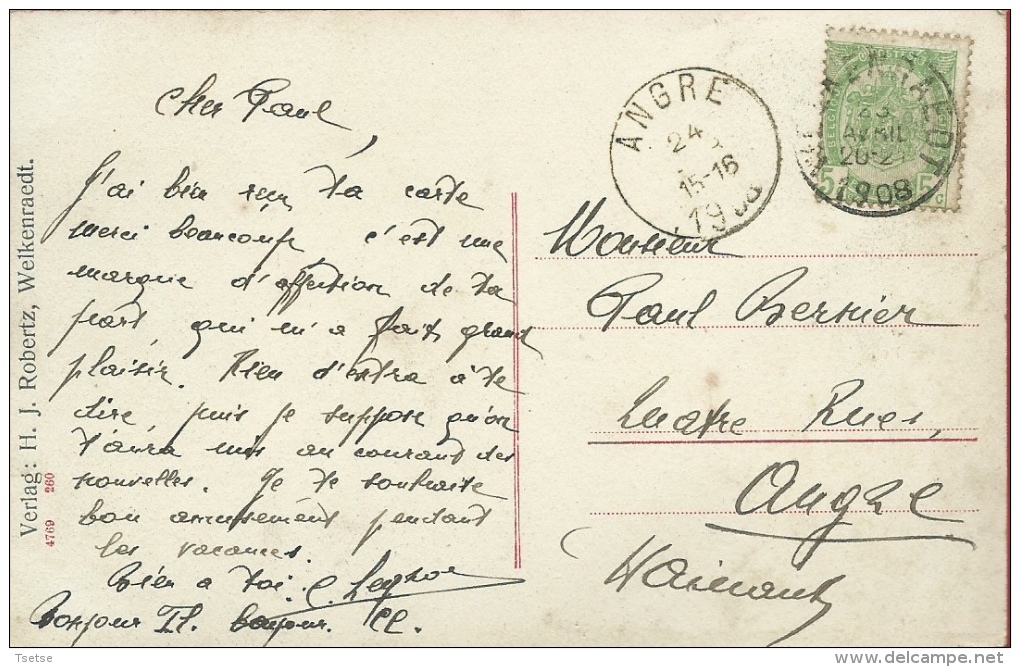 Cher Paul,
J'ai bien reçu ta carte
merci beaucoup c'est une
marque d'affection de ta
part qui m'a fait grand
plaisir. Rien d'extra à te
dire puis je suppose qu'on
t'aura mis au courand des
nouvelles. Je te souhaite
bon amusement pendant
les vacances.
Bien a toi.
Bonjour bonjour.
ANGRE
24
15-16
19
23
AVRIL
20-2
1908
5
5
c
Monsieur
Paul Bernier
Quatre Rues,
Angre
(Hainaut)
Verlag: H. J. Robertz, Welkenraedt.
4769 260
Tsetse
delcampe.net